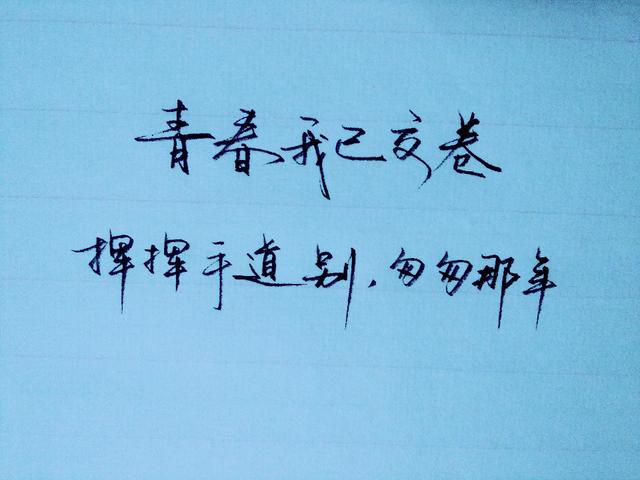 青春我已交卷
挥挥手道别,匆匆那年